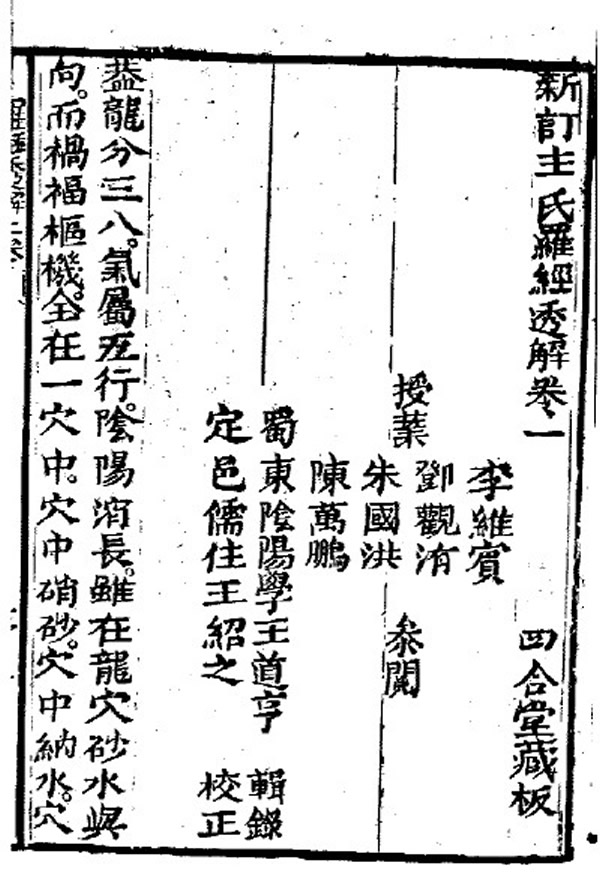 新訂王氏羅經透解卷一
四合堂藏板
李維賓
鄧觀洧
授業
參閱
朱國洪
陳萬鵬
蜀東陰陽學王道亨 輯錄
定邑儒住王紹之 校正
蓋龍分三八。氣屬五行。陰陽消長。雖在龍穴砂水與
向。而禍福樞機。全在一穴中。穴中硝砂。穴中納水。穴